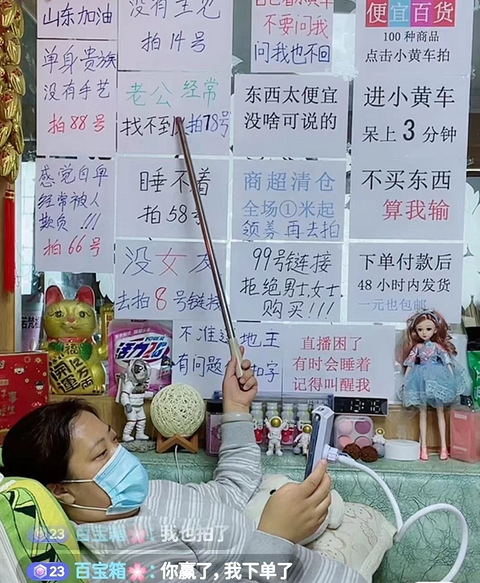 山东加油
没有主见
拍14号
不要问我
问我也不回
便宜百货
100种商品
点击小黄车拍
单身贵族
没有手艺
拍88号
老公经常
找不到 拍78号
东西太便宜
没啥可说的
进小黄车
呆上3分钟
感觉自卑
经常被人
欺负!!!
拍66号
睡不着
拍58号
商超清仓
全场①米起
领券再去拍
不买东西
算我输
没女友
去拍8号链接
99号链接
拒绝男士,女士
购买!!!
下单付款后
48小时内发货
一元也包邮
活力28
不准 地王
有问题 扣字
直播困了
有时会睡着
记得叫醒我
23 百宝箱: 我也拍了
23 百宝箱: 你赢了,我下单了